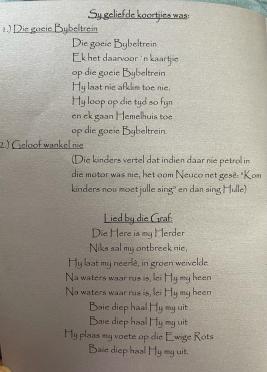 Sy geliefde koortjies was:
1.) Die goeie Bybeltrein
Die goeie Bybeltrein
Ek het daarvoor 'n kaartjie
op die goeie Bybeltrein
Hy laat nie afklim toe nie.
Hy loop op die tyd so fyn
en ek gaan Hemelhuis toe
op die goeie Bybeltrein.
2.) Geloof wankel nie
(Die kinders vertel dat indien daar nie petrol in
die motor was nie, het oom Neuco net gesê: "Kom
kinders nou moet julle sing" en dan sing Hulle)
Lied by die Graf:
Die Here is my Herder
Niks sal my ontbreek nie,
Hy laat my neerlê, in groen weivelde
Na waters waar rus is, lei Hy my heen
Na waters waar rus is, lei Hy my heen
Baie diep haal Hy my uit
Baie diep haal Hy my uit
Hy plaas my voete op die Ewige Rots
Baie diep haal Hy my uit.